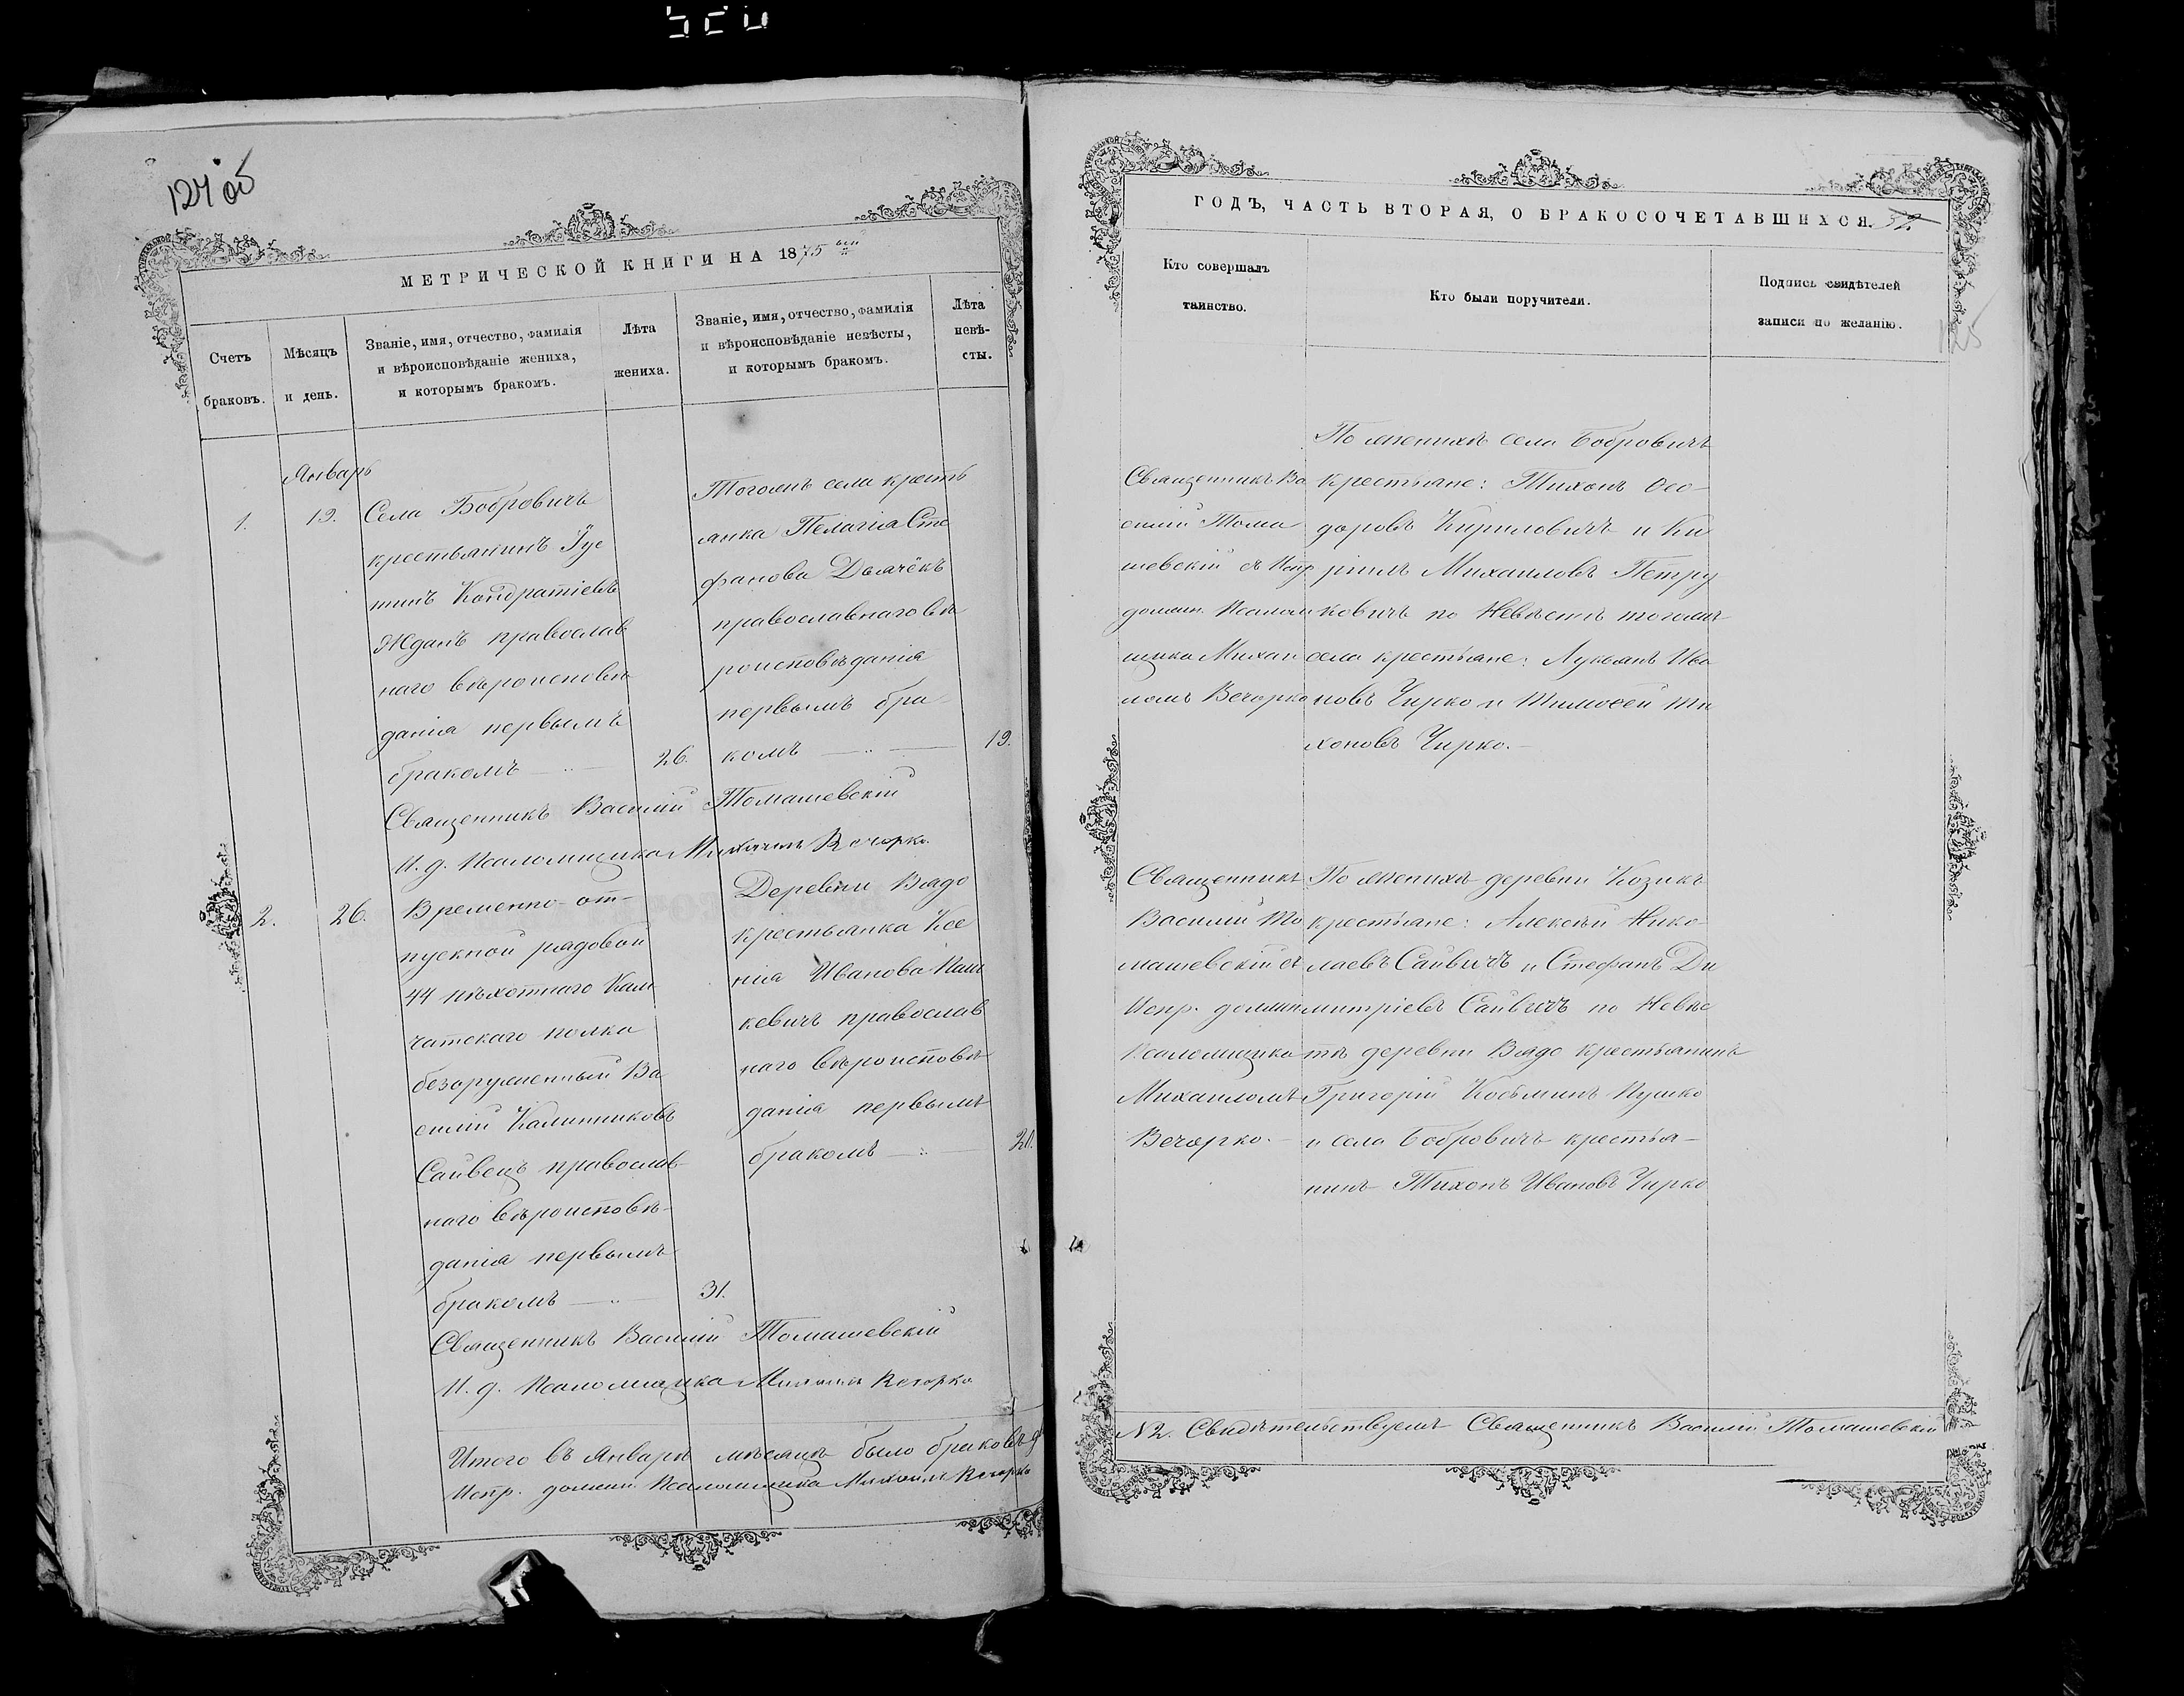 124 об
МЕТРИЧЕСКОЙ КНИГИ НА 1875 ый
Счетъ
браковъ.
Мѣсяцъ
и день.
Званіе, имя, отчество, фамилія
и вѣроисповѣданіе жениха,
и которымъ бракомъ.
Лѣта
жениха.
Званіе, имя, отчество, фамилія
и вѣроисповѣданіе невѣсты,
и которымъ бракомъ.
Лѣта
невѣ-
сты.
Январь
1.
19.
Села Бобровичъ
крестьянинъ Іус
тинъ Кондратіевъ
Жданъ православ
наго вѣроисповѣ
данія первымъ
бракомъ
26.
Тогожъ села кресть
янка Пелагія Сте
фанова Дьячёкъ
православнаго вѣ
роисповѣданія
первымъ бра-
комъ
19.
Священникъ Василій Томашевскій
И. д. Псаломщика Михаилъ Вечорко.
2.
26.
Временно-от-
пускной рядовой
44 пѣхотнаго Кам
чатскаго полка
безоружный Ва
силій Калинниковъ
Сайвецъ православ-
наго вѣроисповѣ-
данія первымъ
бракомъ
31.
Деревни Вядо
крестьянка Ксе
нія Иванова Паш
кевичъ православ
наго вѣроисповѣ-
данія первымъ
бракомъ
20.
Священникъ Василій Томашевскій
И. д. Псаломщика Михаилъ Вечорко
Итого въ Январѣ мѣсяцѣ было браковъ
Испр. должн. Псаломщика Михаилъ Вечорко
ГОДЪ, ЧАСТЬ ВТОРАЯ, О БРАКОСОЧЕТАВШИХСЯ. 52
125
Кто совершалъ
таинство.
Кто были поручители.
Подпись свидѣтелей
записи по желанію.
Священникъ Ва
силій Тома
шевскій съ Испр
должн. Псалом
щика Михаи
ломъ Вечорко
По женихѣ села Бобровичъ
крестьяне: Тихонъ Ѳео-
доровъ Кириловичъ и Ки
риллъ Михаиловъ Петру
ковичъ по Невѣстѣ тогожъ
села крестьяне: Лукьянъ Ива
новъ Чирко и Тимоѳей Ти
хоновъ Чирко.
Священникъ
Василій То
машевскій съ
Испр. должн
Псаломщика
Михаиломъ
Вечорко.
По женихѣ деревни Козикъ
крестьяне: Алексѣй Нико
лаевъ Сайвичъ и Стефанъ Ди
митріевъ Сайвичъ по Невѣс
тѣ деревни Вядо крестьянинъ
Григорій Косьминъ Пушко
и села Бобровичъ крестья-
нинъ Тихонъ Ивановъ Чирко
№2. Свидѣтельствуемъ Священникъ Василій Томашевскій